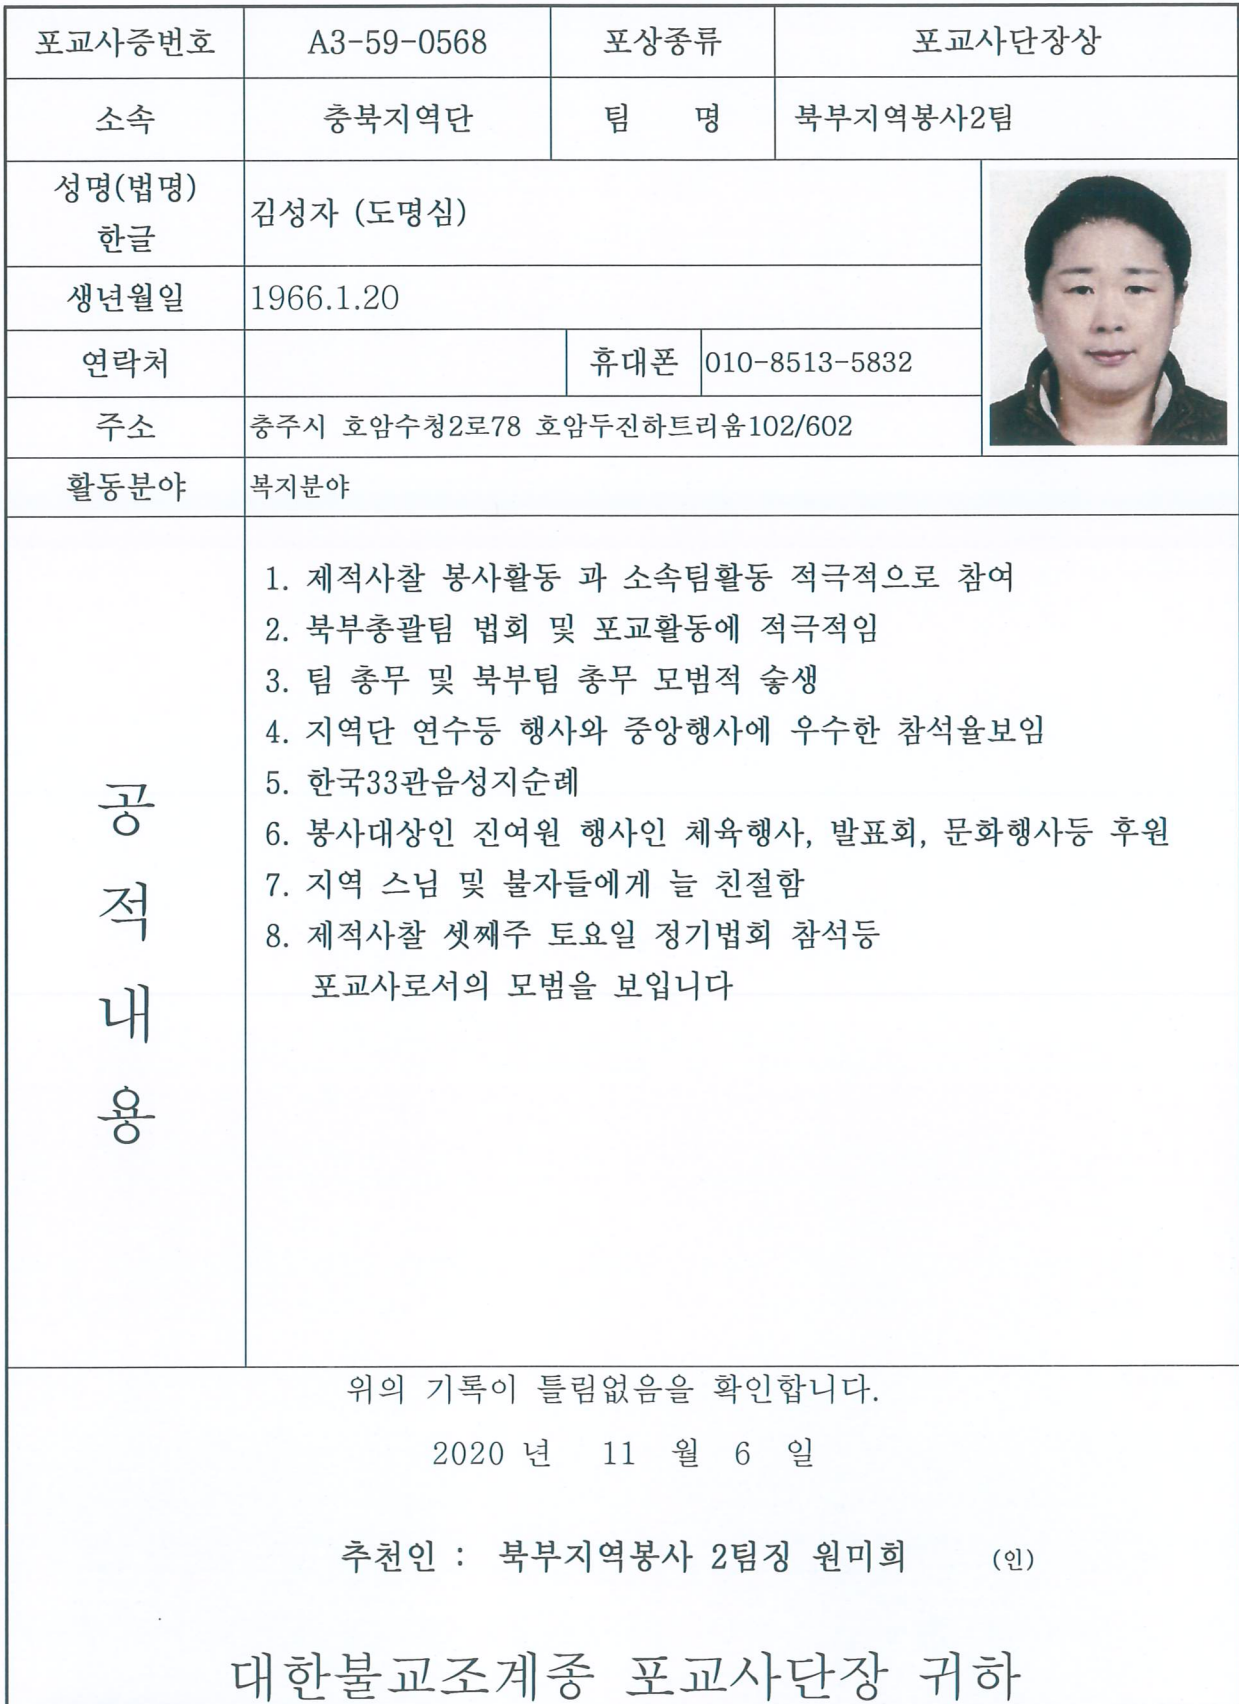 포교사증번호 A3-59-0568 포상종류 포교사단장상
소속 충북지역단 팀 명 북부지역봉사2팀
성명(법명)
한글
김성자 (도명심)
생년월일 1966.1.20
연락처 휴대폰 010-8513-5832
주소 충주시 호암수청2로78 호암두진하트리움102/602
활동분야 복지분야
공
적
내
용
1. 제적사찰 봉사활동 과 소속팀활동 적극적으로 참여
2. 북부총괄팀 법회 및 포교활동에 적극적임
3. 팀 총무 및 북부팀 총무 모범적 숳생
4. 지역단 연수등 행사와 중앙행사에 우수한 참석율보임
5. 한국33관음성지순례
6. 봉사대상인 진여원 행사인 체육행사, 발표회, 문화행사등 후원
7. 지역 스님 및 불자들에게 늘 친절함
8. 제적사찰 셋째주 토요일 정기법회 참석등
포교사로서의 모범을 보입니다
위의 기록이 틀림없음을 확인합니다.
2020 년 11 월 6 일
추천인 : 북부지역봉사 2팀징 원미희 (인)
대한불교조계종 포교사단장 귀하